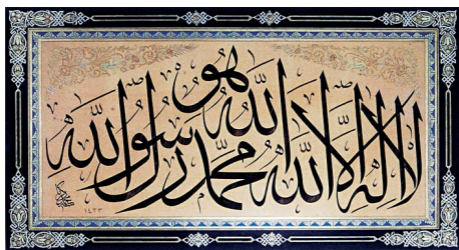 لا اله الا الله الله هو محمد رسول الله
١٤٢٣